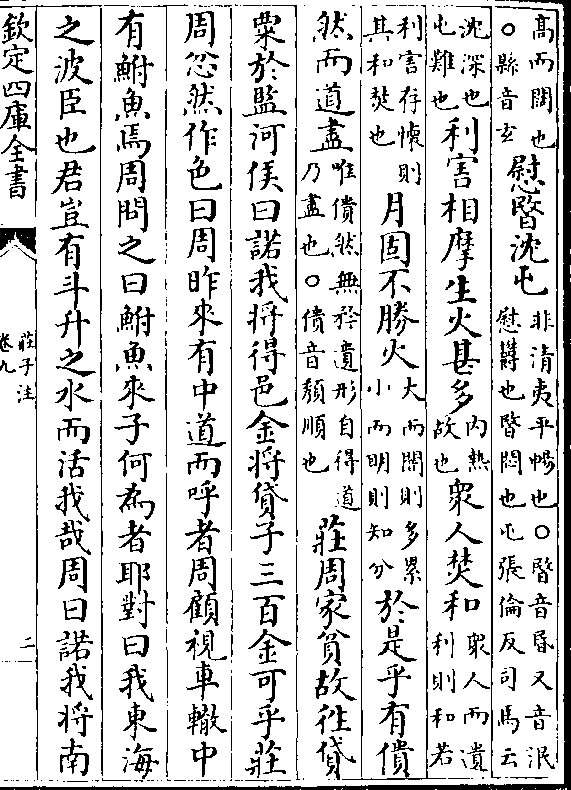 高而闊也
○縣音玄
慰暋沈屯
非清夷平暢也○暋音昬又音泯
慰鬱也暋悶也屯張倫反司馬云
沈深也
屯難也
利害相摩生火甚多
内熱
故也
衆人焚和
衆人而遺
利則和若
利害存懐則
其和焚也
月固不勝火
大而闇則多累
小而明則知分
於是乎有僓
然而道盡
唯僓然無矜遺形自得道
乃盡也○僓音頽順也
莊周家貧故徃貸
粟於監河侯曰諾我將得邑金將貸子三百金可乎莊
周忿然作色曰周昨來有中道而呼者周顧視車轍中
有鮒魚焉周問之曰鮒魚來子何為者耶對曰我東海
之波臣也君豈有斗升之水而活我哉周曰諾我將南
欽定四庫全書
莊子注
卷九
二